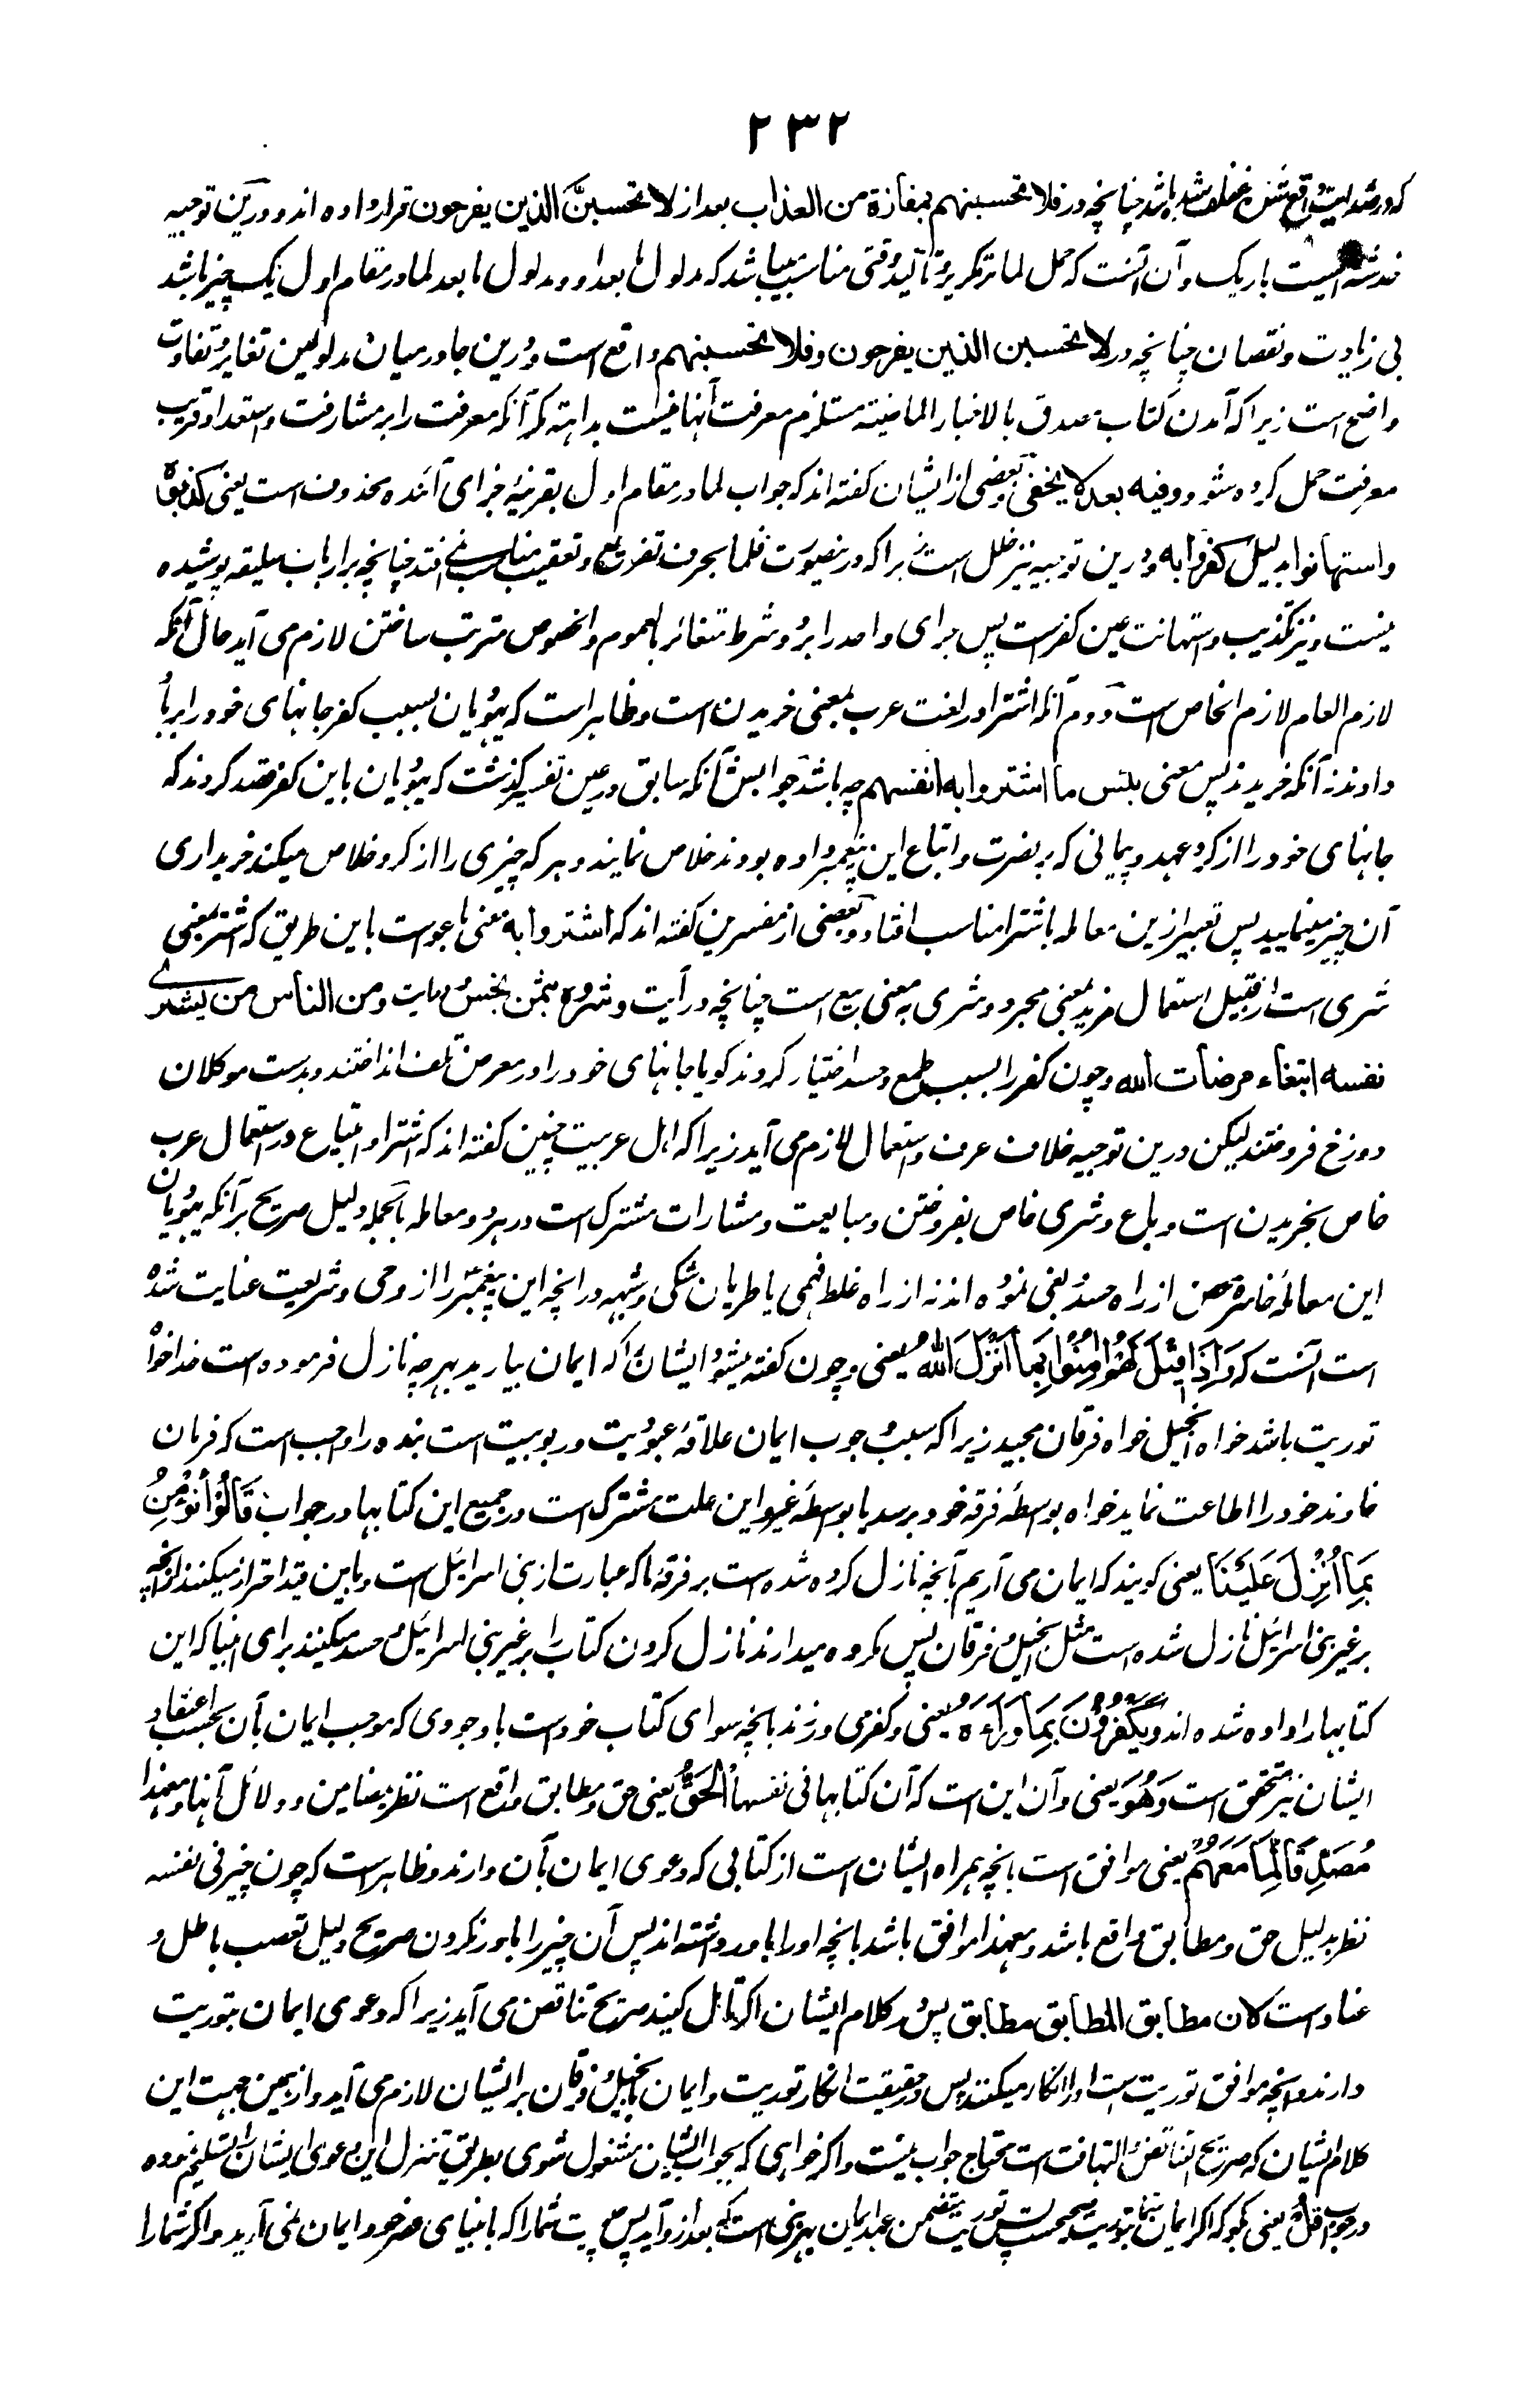 ۲۳۲
که در صدر آیت واقع شدن غفلت شده باشد چنانچه در فلا تحسبنهم بمفازة من العذاب بعد از لا تحسبن الذین یفرحون قرار داده اند و درین توجیه
خدشه ایست باریک و آن آنست که حمل لما بر تکریر و تاکید وقتی مناسب میباشد که مدلول ما بعد او و مدلول ما بعد لما در مقام اول یک چیز باشد
بی زیادت و نقصان چنانچه در لا تحسبن الذین یفرحون و فلا تحسبنهم واقع است و درین جا در میان مدلولین تغایر و تفاوت
واضح است زیرا که آمدن کتاب مصدق بالاخبار الماضیه مستلزم معرفت آنها نیست بداهته مگر آنکه معرفت را بر مشارفت و استعداد قریب
معرفت حمل کرده شود و فیه بعد لا یخفی و بعضی از ایشان گفته اند که جواب لما در مقام اول بقرینه جزای آئنده محذوف است یعنی کذبوه
و استهانوا بدلیل کفروا به و درین توجیه نیز خلل است زیرا که درینصورت فلما بحرف تفریع و تعقیب مناسب نمی افتد چنانچه بر ارباب سلیقه پوشیده
نیست و نیز تکذیب و استهانت عین کفرست پس جزای واحد را بر دو شرط متغائر بالعموم والخصوص مترتب ساختن لازم می آید حال آنکه
لازم العام لازم الخاص است دوم آنکه اشترا در لغت عرب بمعنی خریدن است و ظاهر است که یهودیان بسبب کفر جانهای خود را برباد
دادند نه آنکه خریدند پس معنی بئس ما اشتروا به انفسهم چه باشد جوابش آنکه سابق در عین تفسیر گذشت که یهودیان باین کفر قصد کردند که
جانهای خود را از گرو عهد و پیمانی که بر نصرت و اتباع این پیغمبر داده بودند خلاص نمایند و هر که چیزی را از گرو خلاص میکند خریداری
آن چیز مینماید پس تعبیر ازین معامله باشترا مناسب افتاد و بعضی از مفسرین گفته اند که اشتروا به معنی باعواست باین طریق که اشترا بمعنی
شری است از قبیل استعمال مزید بمعنی مجرد و شری به معنی بیع است چنانچه در آیت و شروه بثمن بخس و آیت و من الناس من یشری
نفسه ابتغاء مرضات الله و چون کفر را بسبب طمع و حسد اختیار کردند گویا جانهای خود را در معرض تلف انداختند و بدست موکلان
دوزخ فروختند لیکن درین توجیه خلاف عرف و استعمال لازم می آید زیرا که اهل عربیت چنین گفته اند که اشترا و ابتیاع در استعمال عرب
خاص بخریدن است و باع و شری خاص بفروختن و مبایعت و مشارات مشترک است در هر دو معامله بالجمله دلیل صریح بر آنکه یهودیان
این معامله خاسره محض از راه حسد و بغی نموده اند نه از راه غلط فهمی یا طریان شکی و شبهه در انچه این پیغمبر را از وحی و شریعت عنایت شده
است آنست که وَاِذَا قِیْلَ لَهُمْ اٰمِنُوْا بِمَا اَنْزَلَ اللهُ یعنی و چون گفته میشود ایشان را که ایمان بیارید بهر چه نازل فرموده است خدا خواه
توریت باشد خواه انجیل خواه فرقان مجید زیرا که سبب وجوب ایمان علاقه عبودیت و ربوبیت است بنده را واجب است که فرمان
خاوند خود را اطاعت نماید خواه بوسطه فرقه خود برسد یا بوسطه غیر و این علت مشترک است در جمیع این کتابها در جواب قَالُوْا نُؤْمِنُ
بِمَا اُنْزِلَ عَلَیْنَا یعنی گویند که ایمان می آریم بآنچه نازل کرده شده است بر فرقه ما که عبارت از بنی اسرائیل است و باین قید احتراز میکنند از انچه
بر غیر بنی اسرائیل نازل شده است مثل انجیل و فرقان پس مکروه میدارند نازل کردن کتاب را بر غیر بنی اسرائیل و حسد میکنند برای انبیا که این
کتابها را داده شده اند وَیَکْفُرُوْنَ بِمَا وَرَآءَهٗ یعنی و کفر می ورزند بانچه سوای کتاب خودست با وجودی که موجب ایمان بآن بحسب اعتقاد
ایشان نیز متحقق است وَهُوَ یعنی و آن این است که آن کتابها فی نفسها الْحَقُّ یعنی حق و مطابق واقع است نظر بمضامین و دلائل آنها و معهذا
مُصَدِّقًا لِّمَا مَعَهُمْ یعنی موافق است بانچه همراه ایشان است از کتابی که دعوی ایمان بآن دارند و ظاهر است که چون چیزی فی نفسه
نظر بدلیل حق و مطابق واقع باشد و معهذا موافق باشد بانچه او را باور داشته اند پس آن چیز را باور نکردن صریح دلیل تعصب باطل و
عناد است کان مطابق المطابق مطابق پس در کلام ایشان اگر تامل کنید صریح تناقض می آید زیرا که دعوی ایمان بتوریت
دارند و انچه موافق توریت است او را انکار میکنند پس در حقیقت انکار توریت و ایمان بانجیل و فرقان بر ایشان لازم می آید و از همین جهت این
کلام ایشان که صریح التناقض و التهافت است محتاج جواب نیست و اگر خواهی که بجواب ایشان مشغول شوی بطریق تنزل این دعوی ایشان را تسلیم نموده
در جواب قُلْ یعنی بگو که اگر ایمان بتوریت توریت متضمن عهد ایمان بهر نبی است که بعد از و آید پس شما را که بانبیای عصر خود ایمان نمی آرید و اگر شما را